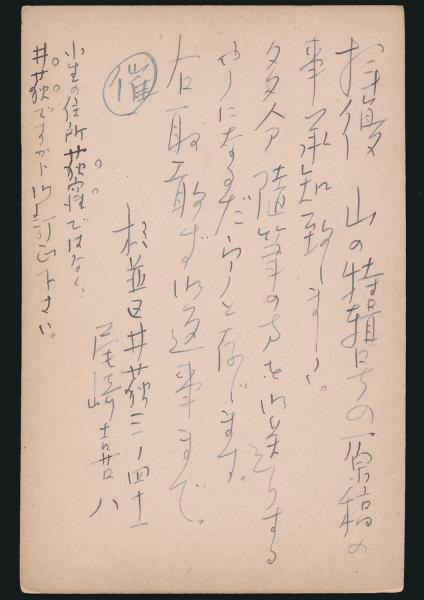 拝復 山の特輯号の原稿の
事承知致しました。
多分随筆の方を御送りする
やうになるだらうと存じます。
右取敢ず御返事まで。
催
杉並区井荻三ノ四十一
尾崎喜八
小生の住所荻窪ではなく、
井荻ですから御訂正下さい。